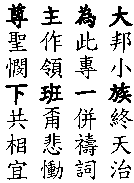 大邦小族終天治
為此專一併禱詞
主作領班甭悲慟
尊聖憫下共相宜